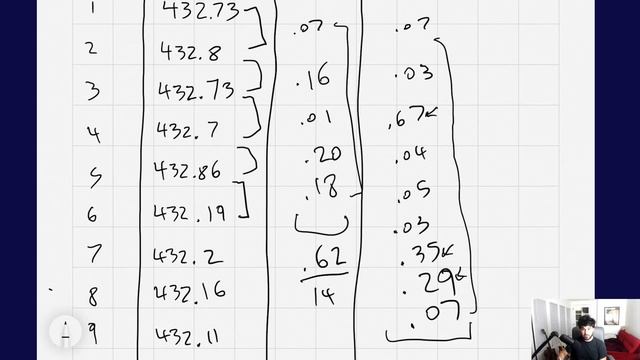 1 432.73 .07 .07
2 432.8
3 432.73 .16 .03
4 432.7 .01 .67
5 432.86 .20 .04
.18 .05
6 432.19 .03
7 432.2 .62 .35
8 432.16 14 .29
9 432.11 .07